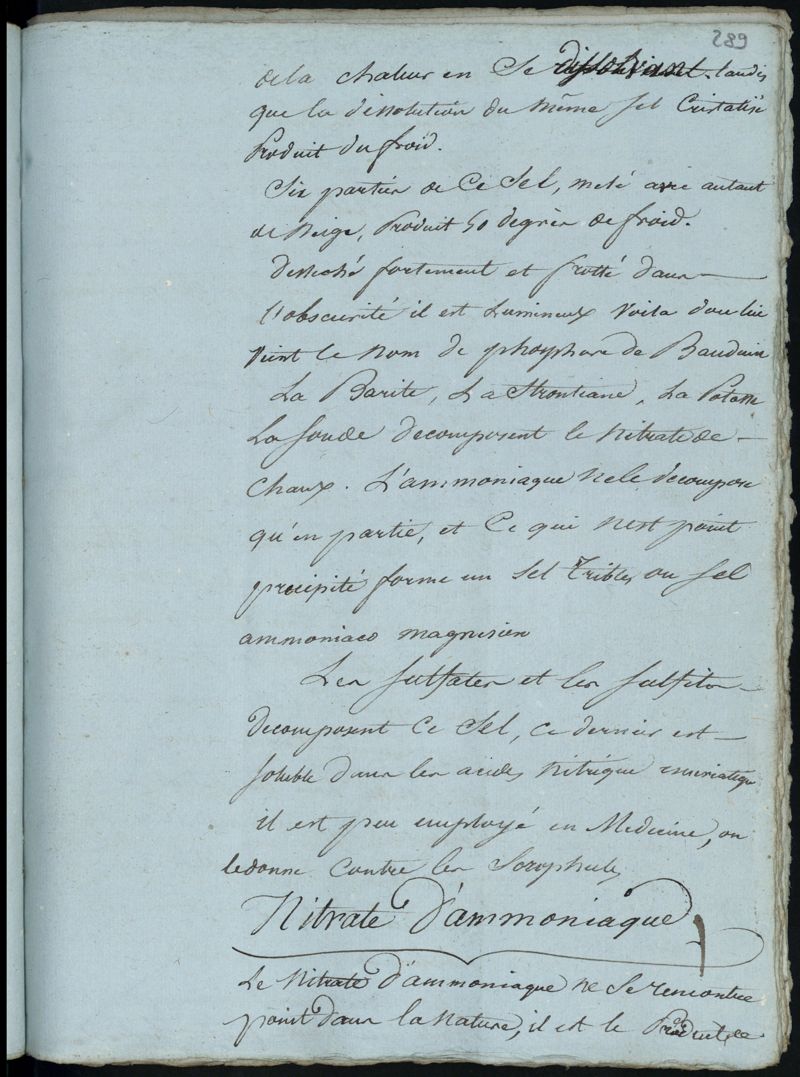 289
de la chaleur en se dissolvant. tandis
que la dissolution du même sel Cristalisé
Produit du froid.
Six partien de Ce Sel, melé avec autant
de Neige, Produit 50 degrèn de froid.
desseché fortement et frotté dans
l'obscurité il est Lumineux voila dou lui
vient le nom de phosphore de Baudouin
La Barite, La Strontiane, La Potasse
La soude decomposent le nitrate de
Chaux. L'ammoniaque ne le decompose
qu'en partie, et Ce qui nest point
precipité forme un sel Tribles ou sel
ammoniaco magnesien
Les sulfates et les sulfites
decomposent Ce Sel, ce dernier est
soluble dans les acides Nitrique muriatique
il est peu employé en Medecine, on
le donne contre les Scrophules
Nitrate D'ammoniaque
Le Nitrate D'ammoniaque ne se rencontre
point dans la Nature, il est le Produit de